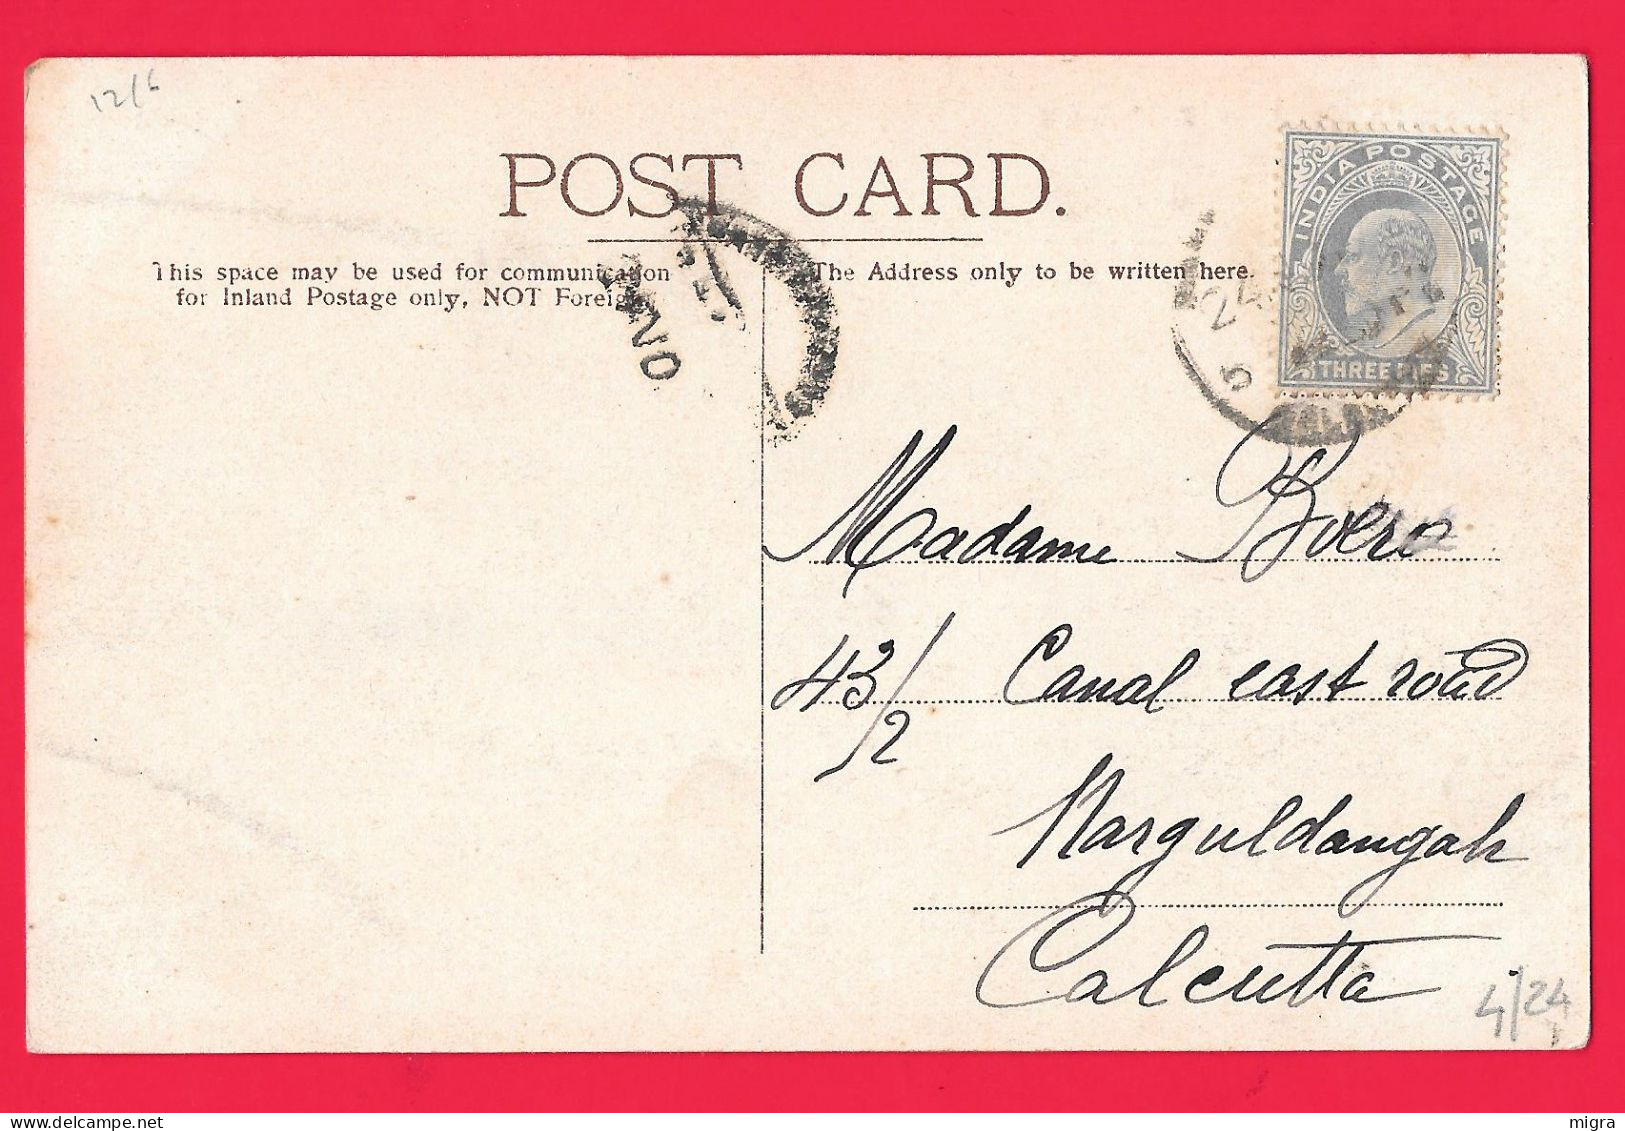 12/6
POST CARD.
This space may be used for communication
for Inland Postage only, NOT Foreign
The Address only to be written here.
INDIA POSTAGE
THREE PIES
Madame Boero
43/2 Canal east road
Narguldangah
Calcutta
4/24
migra